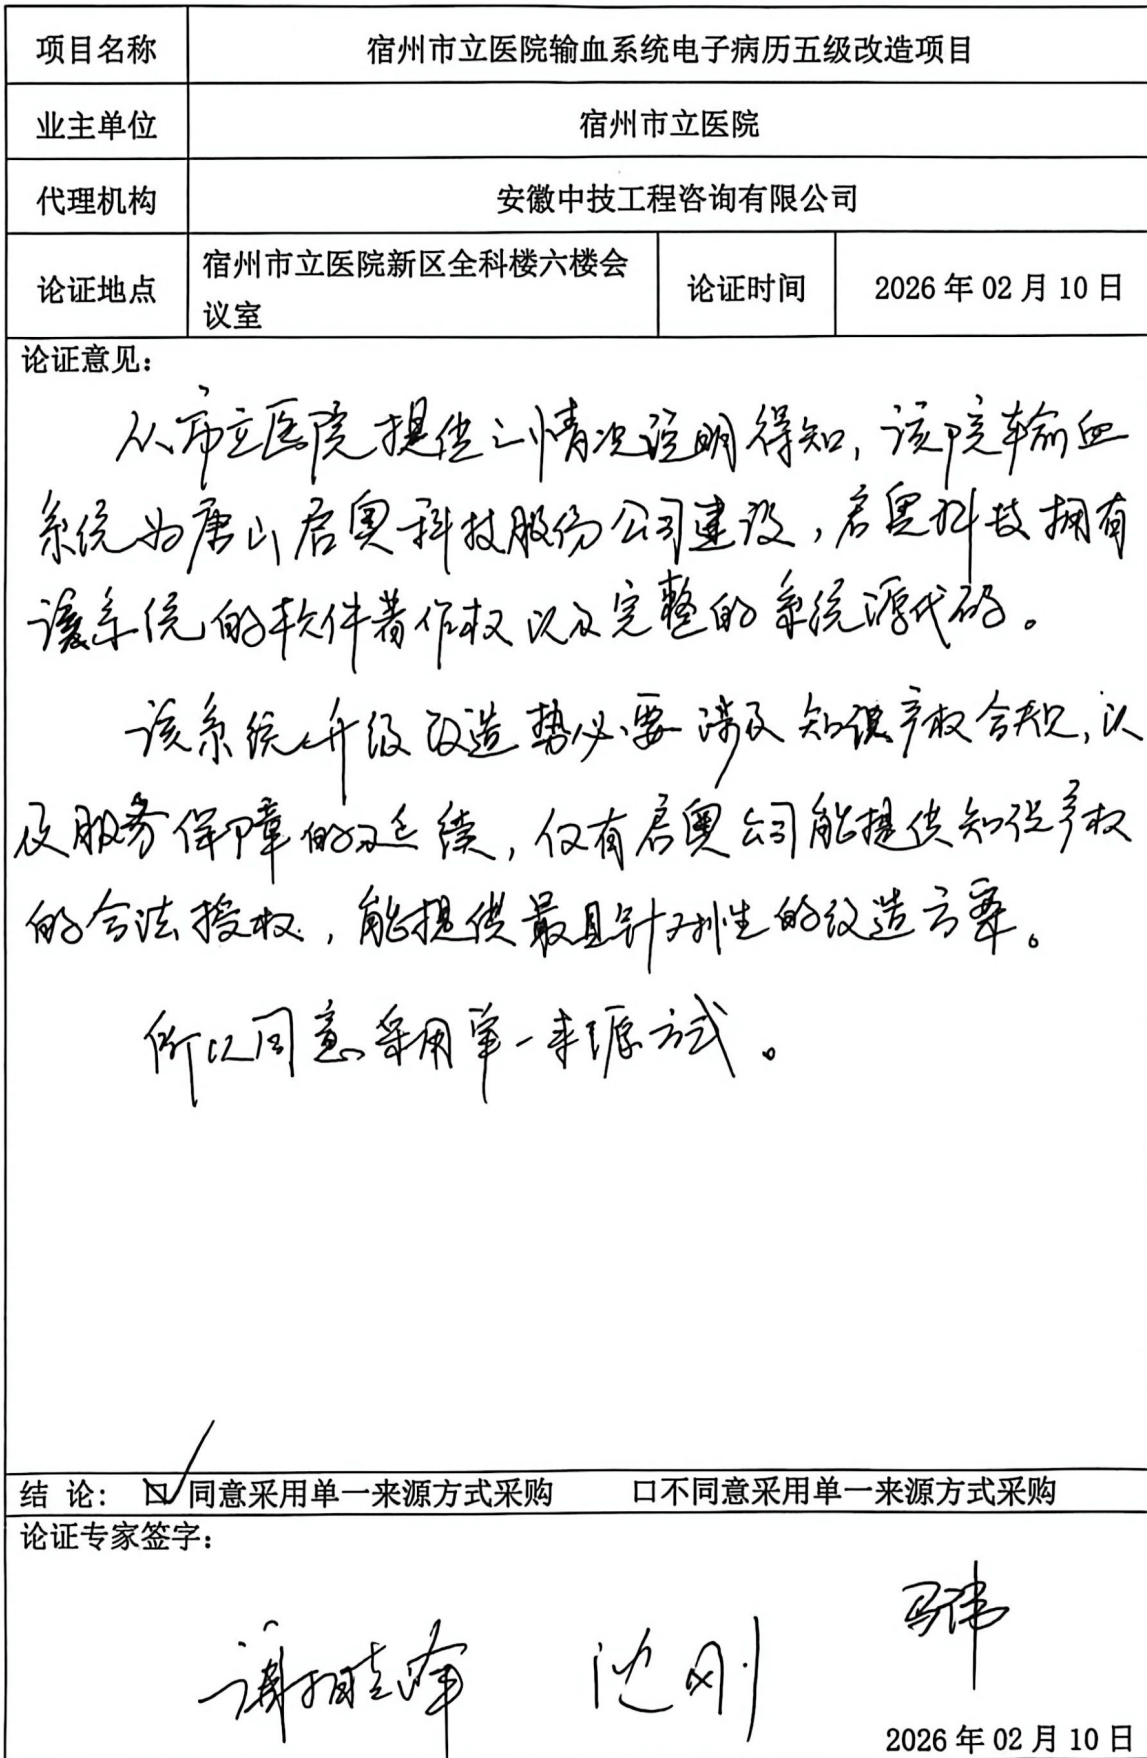 项目名称 宿州市立医院输血系统电子病历五级改造项目
业主单位 宿州市立医院
代理机构 安徽中技工程咨询有限公司
论证地点 宿州市立医院新区全科楼六楼会
议室
论证时间 2026年02月10日
论证意见：
从市立医院提供之情况说明得知，该院输血
系统为唐山启奥科技股份公司建设，启奥科技拥有
该系统的软件著作权以及完整的系统源代码。
该系统升级改造势必要涉及知识产权合规，以
及服务保障的延续，仅有启奥公司能提供知识产权
的合法授权，能提供最具针对性的改造方案。
所以同意采用单一来源方式。
结 论：☑同意采用单一来源方式采购 口不同意采用单一来源方式采购
论证专家签字：
马伟
沈刚
2026年02月10日